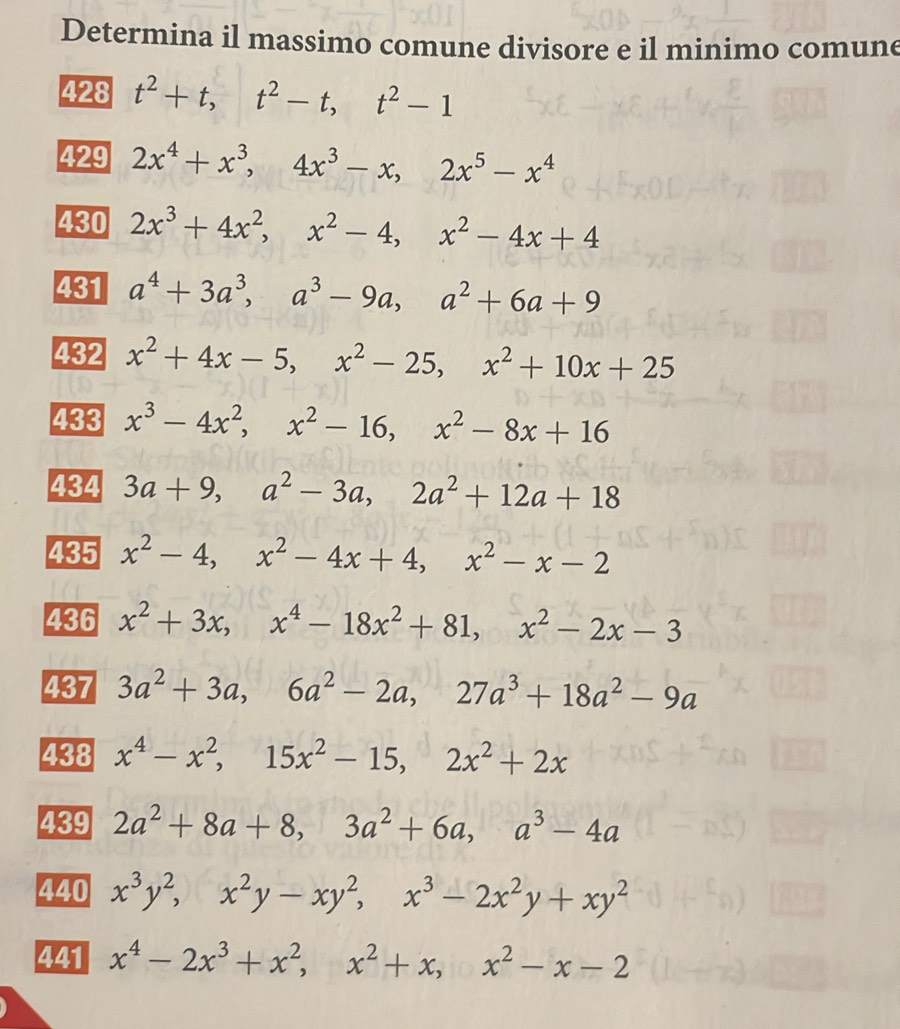 Determina il massimo comune divisore e il minimo comune
428 t² + t, t² − t, t² − 1
429 2x⁴ + x³, 4x³ − x, 2x⁵ − x⁴
430 2x³ + 4x², x² − 4, x² − 4x + 4
431 a⁴ + 3a³, a³ − 9a, a² + 6a + 9
432 x² + 4x − 5, x² − 25, x² + 10x + 25
433 x³ − 4x², x² − 16, x² − 8x + 16
434 3a + 9, a² − 3a, 2a² + 12a + 18
435 x² − 4, x² − 4x + 4, x² − x − 2
436 x² + 3x, x⁴ − 18x² + 81, x² − 2x − 3
437 3a² + 3a, 6a² − 2a, 27a³ + 18a² − 9a
438 x⁴ − x², 15x² − 15, 2x² + 2x
439 2a² + 8a + 8, 3a² + 6a, a³ − 4a
440 x³y², x²y − xy², x³ − 2x²y + xy²
441 x⁴ − 2x³ + x², x² + x, x² − x − 2